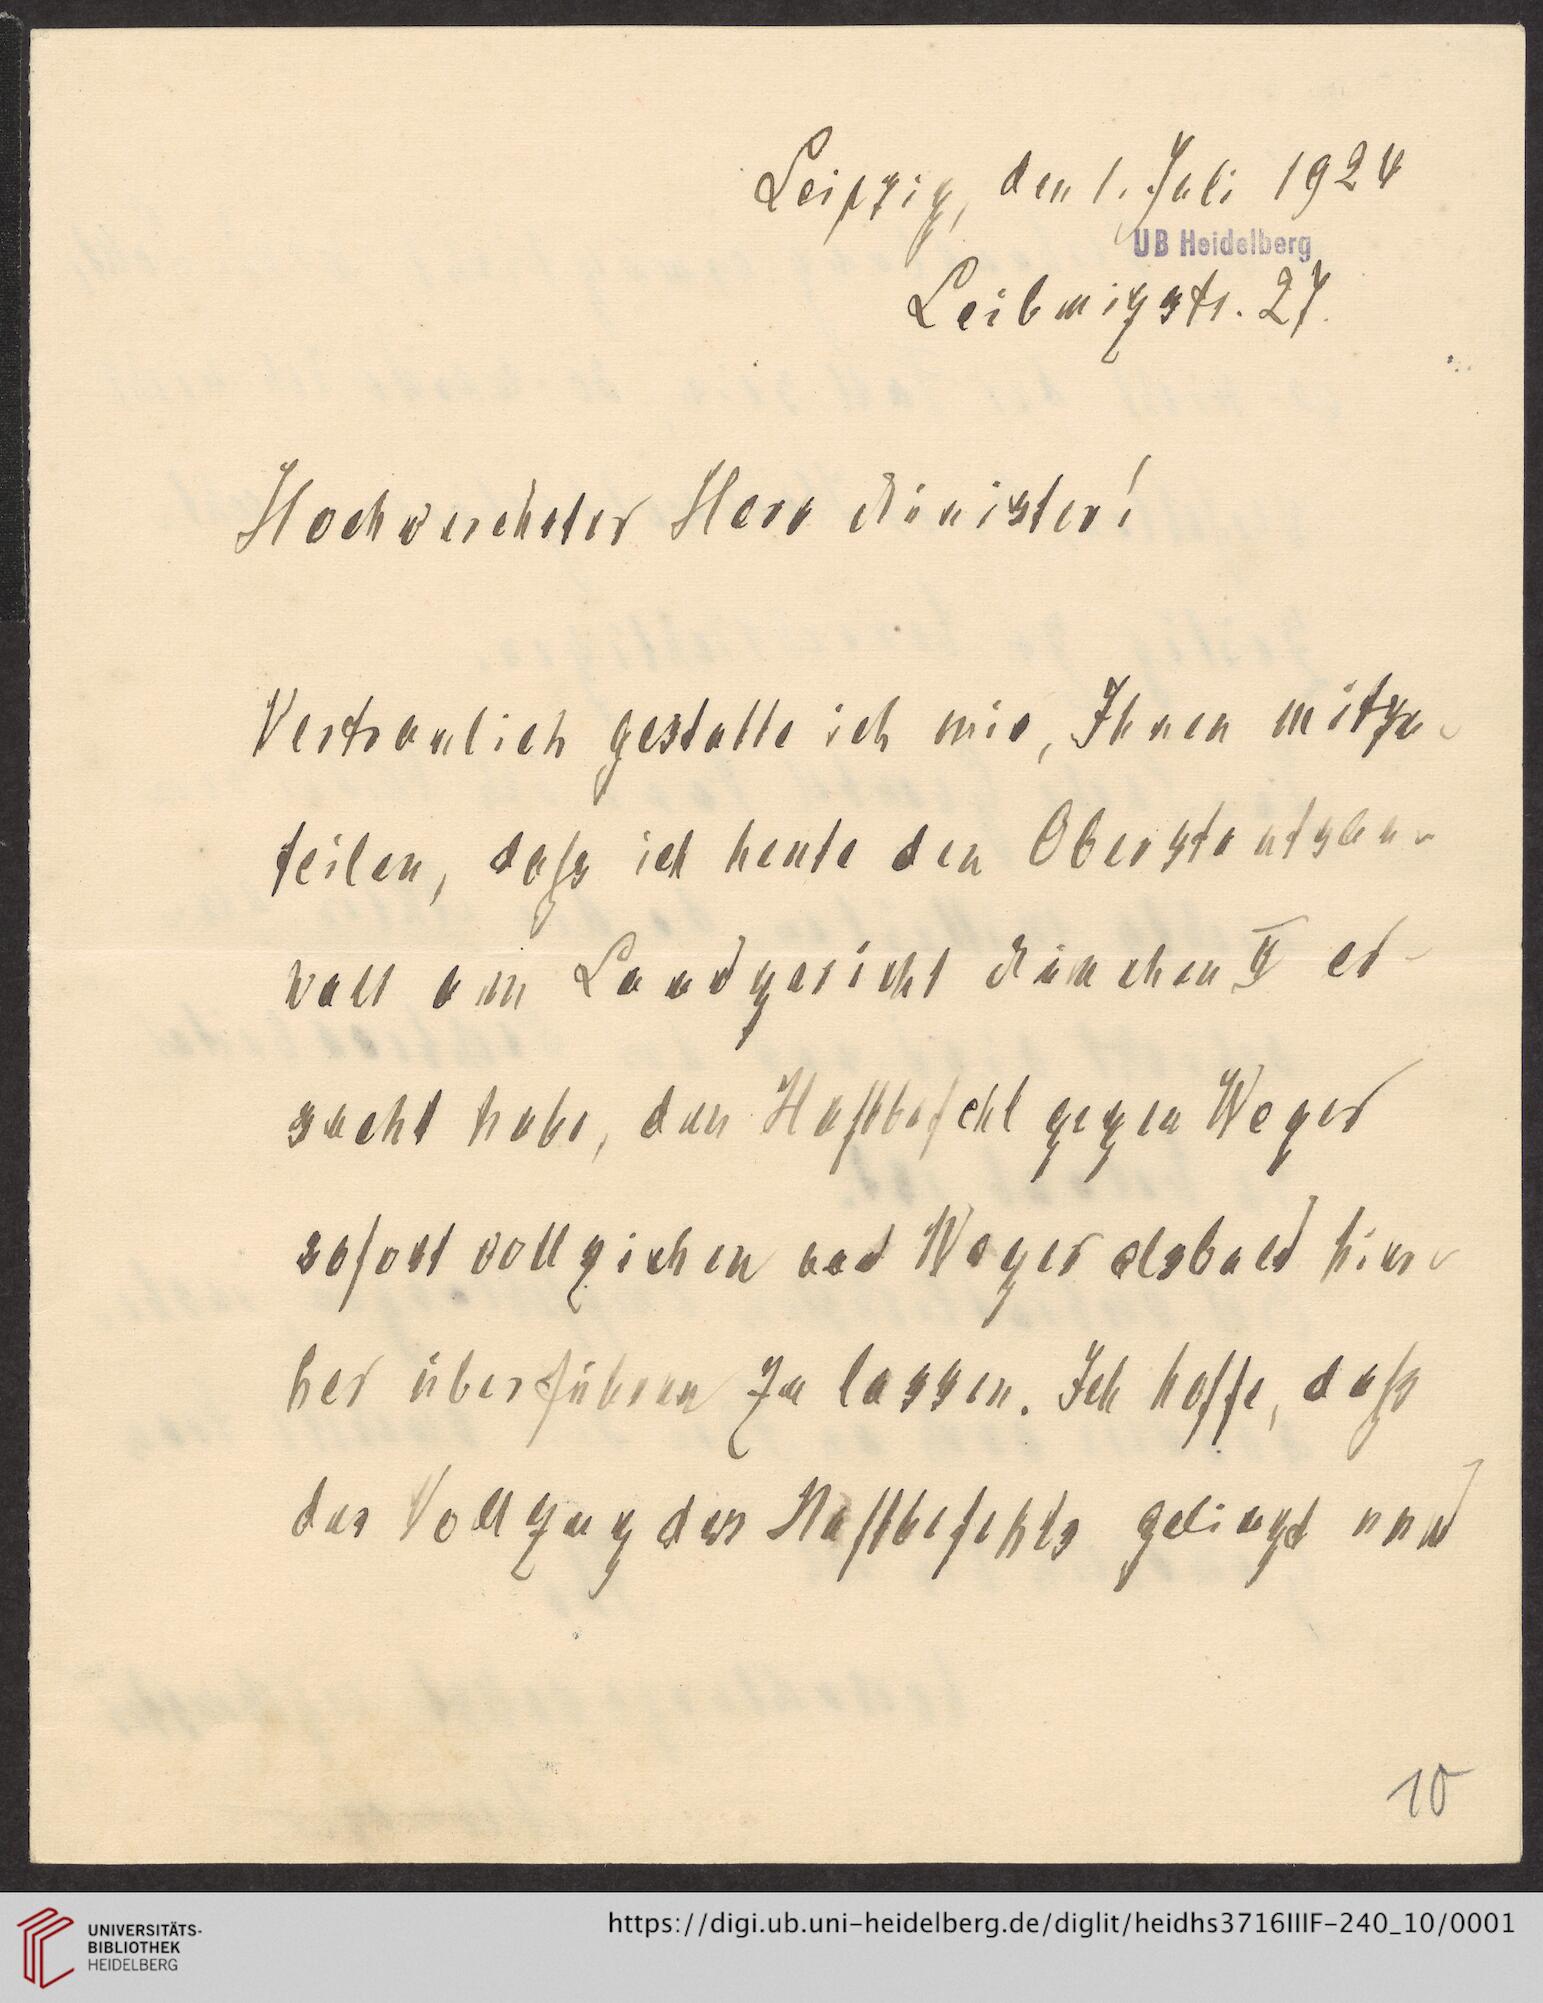 Leipzig, den 1. Juli 1924
UB Heidelberg
Leibnizstr. 27.
Hochverehrter Herr Minister!
Vertraulich gestatte ich mir, Ihnen mitzu-
teilen, daß ich heute den Oberstaatsan-
walt am Landgericht München II er-
sucht habe, den Haftbefehl gegen Weger
sofort vollziehen und Weger alsbald hier-
her überführen zu lassen. Ich hoffe, daß
der Vollzug des Haftbefehls gelingt und
10
UNIVERSITÄTS-
BIBLIOTHEK
HEIDELBERG
https://digi.ub.uni-heidelberg.de/diglit/heidhs3716IIIF-240_10/0001